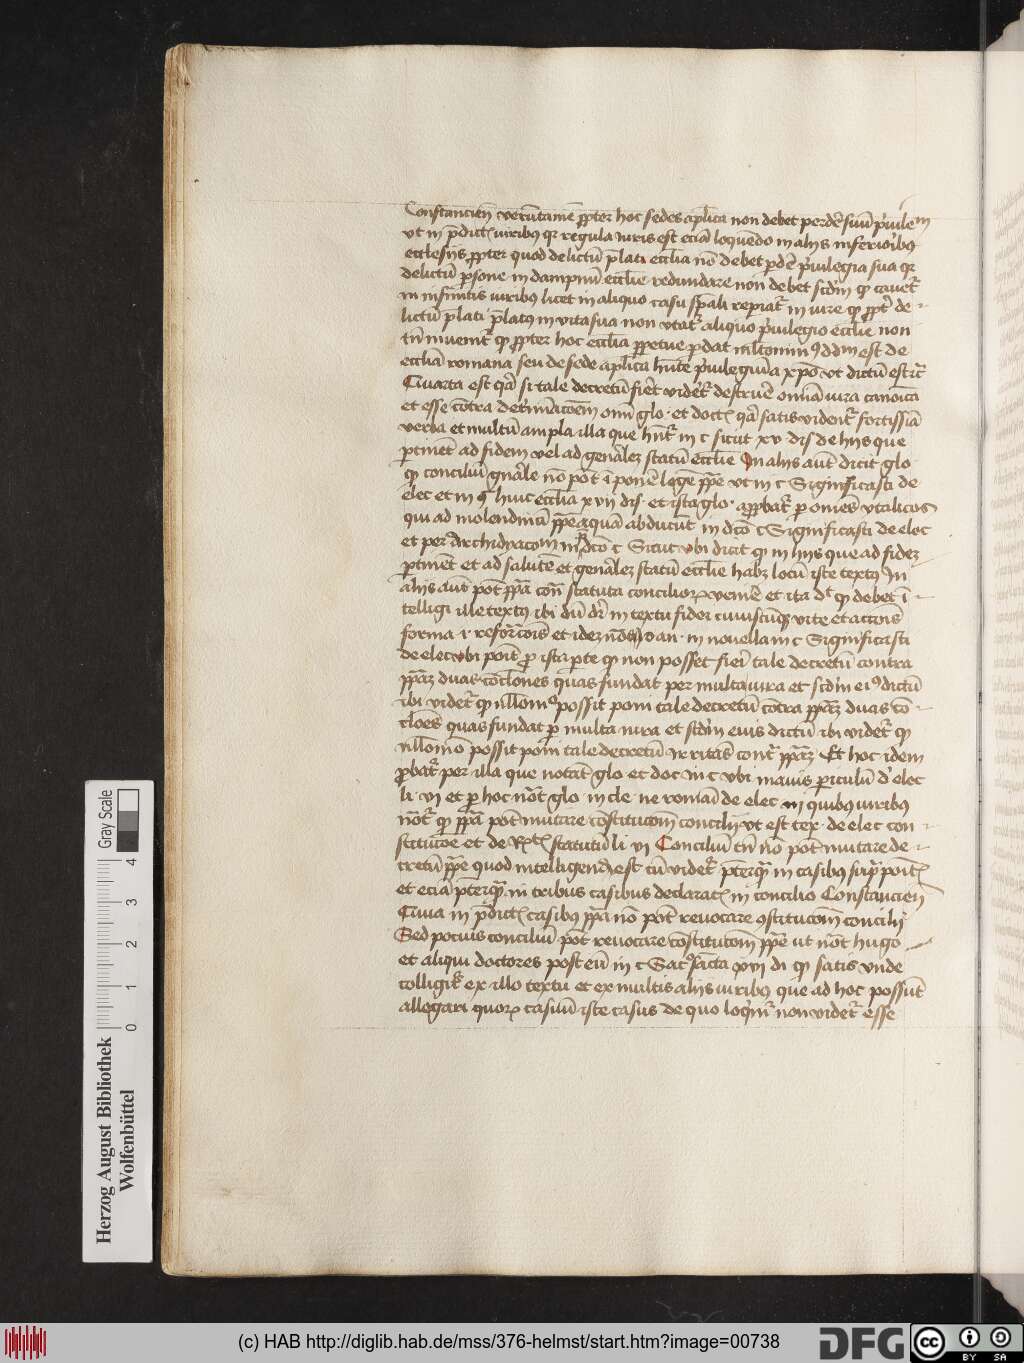 Constancien veruntamē ꝓpter hoc sedes aplica non debet perdē suū pͥuilem
ut in pͥdict iuribꝰ qr regula iuris est eciā loquendo in alijs inferioribꝰ
ecclesijs ꝓpter quod delictū plati ecclīa nō debet pdē pͥuilegia sua qr
delictū psone in dampnū ecclie redundare non debet scdm qͥ cauetr
in infinitis iuribꝰ licet in aliquo casu spali repiatr in iure qͥ ꝓpt de-
lictū plati platus in vita sua non vtatr aliquo pͥuilegio ecclie non
tn inuenitr qͥ ꝓpter hoc ecclīa ppetue pdat est de
eccliā romana seu de sede aplica hnte pͥuilegium a xpo ut dictū est
Quarta est qͣ si tale decretū fiēt videtr destruē omīa iura canoica
et esse cōtra detminacōem oīm glo et doct qͣ satis videntr fortissīa
verba et multū ampla illa que hntr in c sicut xv dis de hijs que
ptinēt ad fidem vel ad genalez statū ecclie In alijs aūt dicit glo
qͥ conciliū gnale nō pōt īponē lege ppe ut in c Significasti de
elec et in c huic ecclīa xvii dis et ista glo approbatr p omēs vtalicos
qui ad molendinū ppe aquā abducūt in dco c Significasti de elec
et per Archidyacon in dco c Sicut ubi dicit qͥ in hijs que ad fidez
ptinēt et ad salutē et genalez statū ecclie habz locū iste textꝰ In
alijs aūt pōt ppa con statuta conciliorꝝ venire et ita dt qͥ debet ī-
telligi ille textꝰ ibi dū dr in textu fidei cuiuscūqꝫ vite et accīns
forma ꝛ reformcōis et idez not Io an in nouella in c Significasti
de elec ubi poīt ꝓ ista pte qͥ non posset fieri tale decretū contra
ppaz duas cōclones quas fundat per multa iura et scdm eiꝰ dictū
ibi videtr qͥ possit poni tale decretū cōtra ppaz duas cō-
clōes quas fundat p multa iura et scdm eius dictū ibi videtr qͥ
possit poni tale decretū contr ppaz Et hoc idem
ꝓbatr per illa que notāt glo et doc in c ubi maius piculū de elec
li vi et p hoc nōt glo in cle ne romāi de elec in quibꝰ iuribꝰ
nōtr qͥ ppa pōt mutare cōstitucom concilij ut est tex de elec con-
stitucōe et de statutū li vi Conciliū tn nō pōt mutare de-
cretū ppe quod intelligend est cū videtr pterqͣ in casibꝰ supͣ poit
et eciā pterqͣ in tribus casibus declarat in concilio Constancien
Quia in pͥdict casibꝰ ppa nō pōt reuocare ꝯstitucom concilij
Sed pocius conciliū pōt reuocare cōstitucom ppe ut nōt hugo
et aliqui doctores post eū in c Sacͦsancta xxii di qͥ satis vnde
colligitr ex illo textu et ex multis alijs iuribꝰ que ad hoc possūt
allegari quorꝝ casuū iste casus de quo loqmr non videtr esse
Gray Scale
4
3
2
1
0
Herzog August Bibliothek
Wolfenbüttel
(c) HAB http://diglib.hab.de/mss/376-helmst/start.htm?image=00738
DFG
cc
BY SA